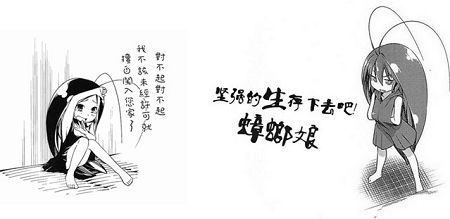 對不起對不起
我不該未經許可就
擅自闖入您家了
坚强的生存下去吧!
蟑螂娘